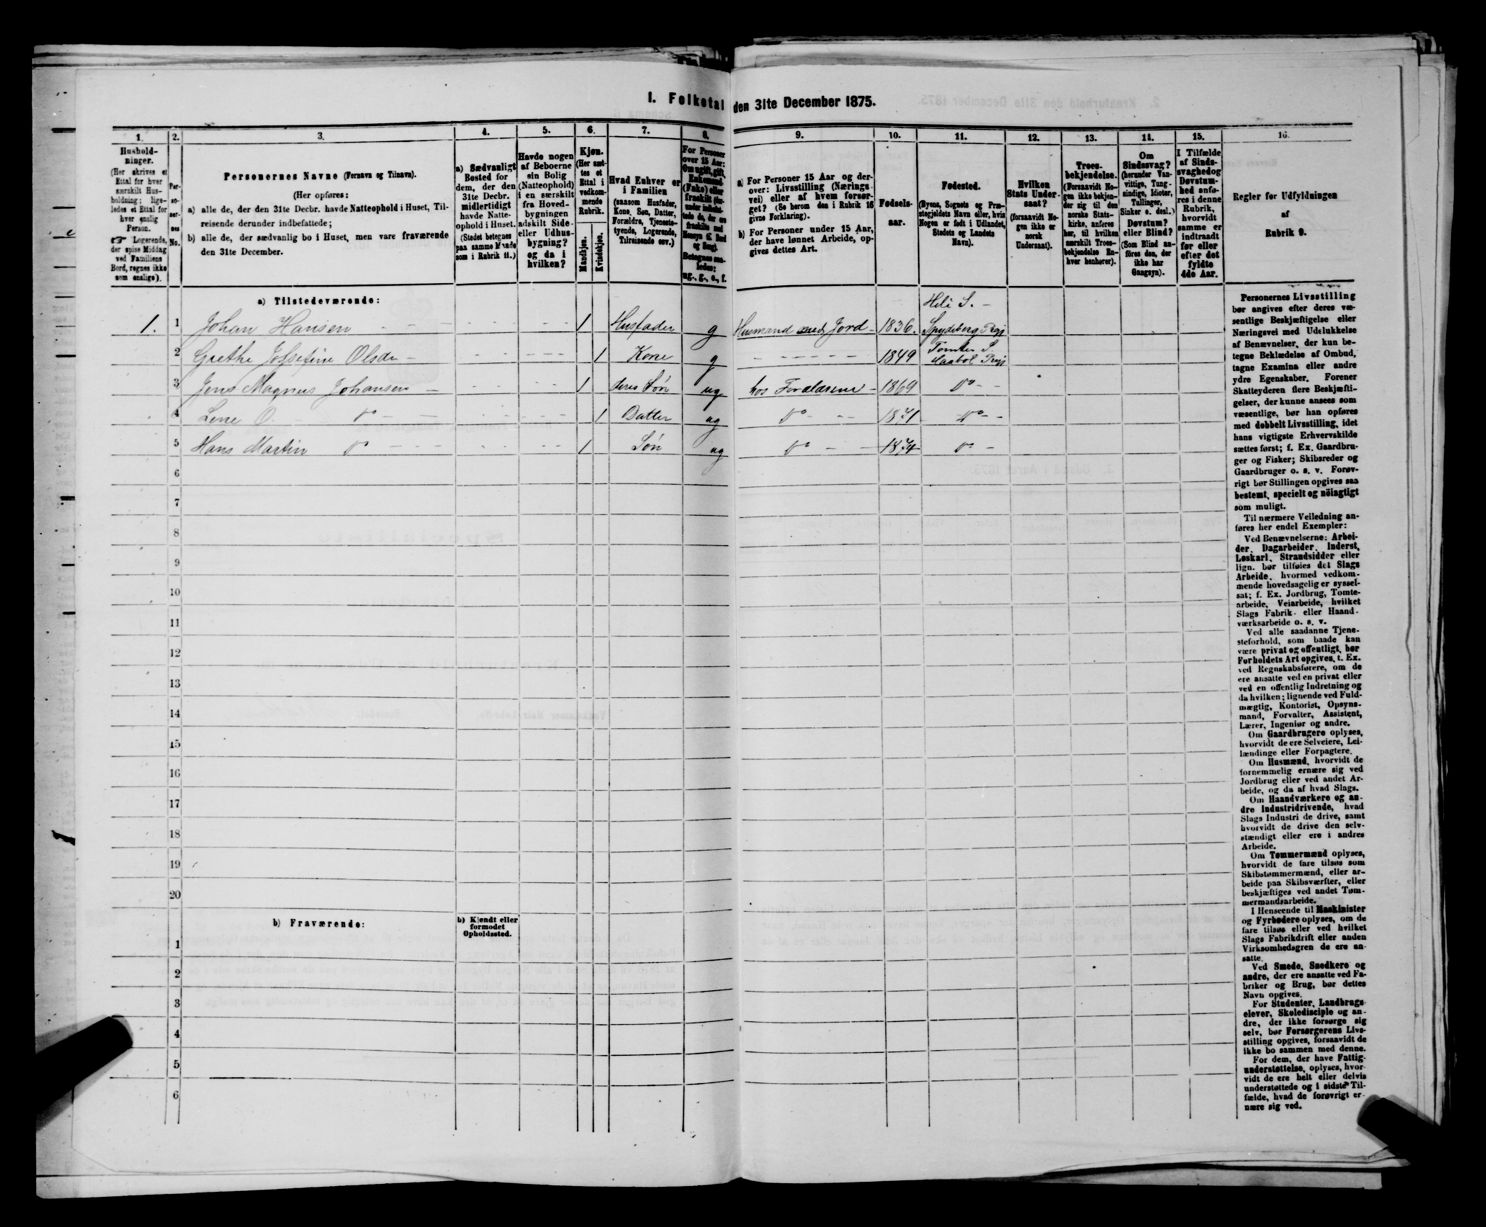 I. Folketal den 31te December 1875.
1. 2. 3. 4. 5. 6. 7. 8. 9. 10. 11. 12. 13. 14. 15. 16.
Hushold-
ninger.
(Her skrives et
Ettal for hver
særskilt Hus-
holdning; lige-
ledes et Ettal for
hver enslig
Person.
☞ Logerende,
der spise Middag
ved Familiens
Bord, regnes ikke
som enslige).
Per-
so-
ner-
nes
No.
Personernes Navne (Fornavn og Tilnavn).
(Her opføres:
a) alle de, der den 31te Decbr. havde Natteophold i Huset, Til-
reisende derunder indbefattede;
b) alle de, der sædvanlig bo i Huset, men vare fraværende
den 31te December.
a) Sædvanligt
Bosted for
dem, der den
31te Decbr.
midlertidigt
havde Natte-
ophold i Huset.
(Stedet betegnes
paa samme Maade
som i Rubrik 11.)
Havde nogen
af Beboerne
sin Bolig
(Natteophold)
i en særskilt
fra Hoved-
bygningen
adskilt Side-
eller Udhus-
bygning?
og da i
hvilken?
Kjøn.
(Her sæt-
tes et
Ettal i
vedkom-
mende
Rubrik.
Mandkjøn.
Kvindekjøn.
Hvad Enhver er
i Familien
(saasom Husfader,
Kone, Søn, Datter,
Forældre, Tjeneste-
tyende, Logerende,
Tilreisende osv.)
For Personer
over 15 Aar:
Om ugift, gift,
Enkemand
(Enke) eller
fraskilt
ug., g., e., f.
a) For Personer 15 Aar og der-
over: Livsstilling (Nærings-
vei) eller af hvem forsør-
get? (Se herom den i Rubrik 16
givne Forklaring).
b) For Personer under 15 Aar,
der have lønnet Arbeide, op-
gives dettes Art.
Fødsels-
aar.
Fødested.
(Byens, Sognets og Præ-
stegjeldets Navn eller, hvis
Nogen er født i Udlandet,
Stedets og Landets
Navn).
Hvilken
Stats Under-
saat?
(forsaavidt No-
gen ikke er
norsk
Undersaat).
Troes-
bekjendelse.
(Forsaavidt No-
gen ikke bekjen-
der sig til den
norske Stats-
kirke, anføres
her, til hvilken
særskilt Troes-
bekjendelse En-
hver henhører).
Om
Sindssvag?
(herunder Van-
vittige, Tung-
sindige, Idioter,
Tullinger,
Sinker o. desl.)
Døvstum?
eller Blind?
(Som Blind an-
føres den, der
ikke har
Gangsyn).
I Tilfælde
af Sinds-
svaghed og
Døvstum-
hed anfø-
res i denne
Rubrik,
hvorvidt
samme er
indtraadt
før eller
efter det
fyldte
4de Aar.
Regler for Udfyldningen
af
Rubrik 9.
a) Tilstedeværende:
1. 1 Johan Hansen 1 Husfader g Husmand med Jord 1836. Heli S. Spydeberg Prgj
2 Grethe Josefine Olsdr 1 Kone g 1849 Tomter S. Haabøl Prgj
3 Jens Magnus Johansen 1 deres Søn ug hos Forældrene 1869 do
4 Lene O. do 1 Datter ug do 1871 do
5 Hans Martin do 1 Søn ug do 1874 do
6
7
8
9
10
11
12
13
14
15
16
17
18
19
20
b) Fraværende:
b) Kjendt eller
formodet
Opholdssted.
1
2
3
4
5
6
Personernes Livsstilling
bør angives efter deres væ-
sentlige Beskjæftigelse eller
Næringsvei med Udelukkelse
af Benævnelser, der kun be-
tegne Beklædelse af Ombud,
tagne Examina eller andre
ydre Egenskaber. Forener
Skatteyderen flere Beskjæfti-
gelser, der kunne ansees som
væsentlige, bør han opføres
med dobbelt Livsstilling, idet
hans vigtigste Erhvervskilde
sættes først; f. Ex. Gaardbru-
ger og Fisker; Skibsreder og
Gaardbruger o. s. v. Forøv-
rigt bør Stillingen opgives saa
bestemt, specielt og nöiagtigt
som muligt.
Til nærmere Veiledning an-
føres her endel Exempler:
Ved Benævnelserne: Arbei-
der, Dagarbeider, Inderst,
Løskarl, Strandsidder eller
lign. bør tilføies det Slags
Arbeide, hvormed vedkom-
mende hovedsagelig er syssel-
sat; f. Ex. Jordbrug, Tomte-
arbeide, Veiarbeide, hvilket
Slags Fabrik- eller Haand-
værksarbeide o. s. v.
Ved alle saadanne Tjene-
steforhold, som baade kan
være privat og offentligt, bør
Forholdets Art opgives, f. Ex.
ved Regnskabsførere, om de
ere ansatte ved en privat eller
ved en offentlig Indretning og
da hvilken; lignende ved Fuld-
mægtig, Kontorist, Opsyns-
mand, Forvalter, Assistent,
Lærer, Ingeniør og andre.
Om Gaardbrugere oplyses,
hvorvidt de ere Selveiere, Lei-
lændinge eller Forpagtere.
Om Husmænd, hvorvidt de
fornemmelig ernære sig ved
Jordbrug eller ved andet Ar-
beide, og da af hvad Slags.
Om Haandværkere og an-
dre Industridrivende, hvad
Slags Industri de drive, samt
hvorvidt de drive den selv-
stændigt eller ere i andres
Arbeide.
Om Tømmermænd oplyses,
hvorvidt de fare tilsøs som
Skibstømmermænd, eller ar-
beide paa Skibsværfter, eller
beskjæftiges ved andet Tøm-
mermandsarbeide.
I Henseende til Maskinister
og Fyrbødere oplyses, om de
fare tilsøs eller ved hvilket
Slags Fabrikdrift eller anden
Virksomhedsgren de ere an-
satte.
Ved Smede, Snedkere og
andre, der ere ansatte ved Fa-
briker og Brug, bør dettes
Navn opgives.
For Studenter, Landbrugs-
elever, Skoledisciple og an-
dre, der ikke forsørge sig
selv, bør Forsørgerens Livs-
stilling opgives, forsaavidt de
ikke bo sammen med denne.
For dem, der have Fattig-
understøttelse, oplyses, hvor-
vidt de ere helt eller delvis
understøttede og i sidste Til-
fælde, hvad de forøvrigt er-
nære sig ved.